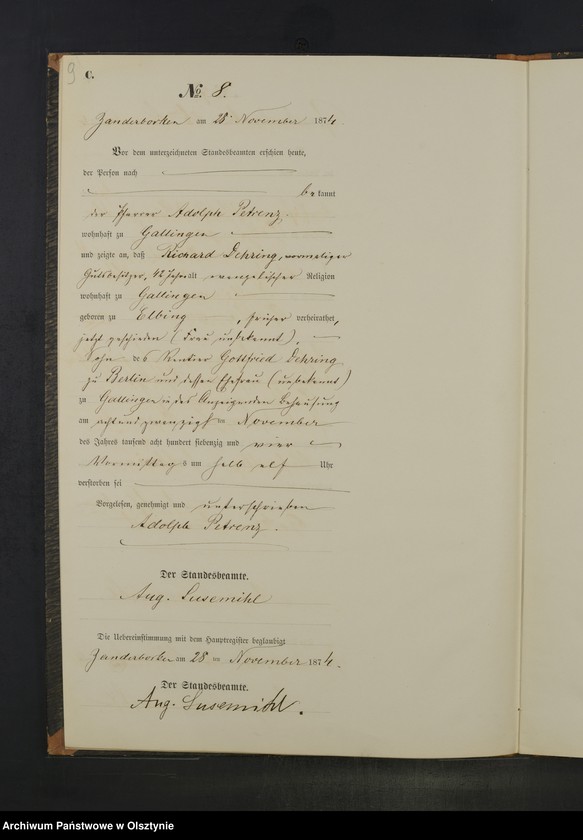 9
C.
No. 8.
Zanderborken am 28 November 1874.
Vor dem unterzeichneten Standesbeamten erschien heute,
der Person nach
bekannt
der Pfarrer Adolph Petrenz.
wohnhaft zu Gallingen
und zeigte an, daß Richard Dehring, vormaliger
Gutsbesitzer, 42 Jahr alt evangelischer Religion
wohnhaft zu Gallingen
geboren zu Elbing, früher verheirathet,
jetzt geschieden (Frau unbekannt),
Sohn des Rentier Gottfried Dehring
zu Berlin und dessen Ehefrau (unbekannt)
zu Gallingen in des Anzeigenden Behausung
am achtundzwanzigsten November
des Jahres tausend acht hundert siebenzig und vier
Vormittags um halb elf Uhr
verstorben sei
Vorgelesen, genehmigt und unterschrieben
Adolph Petrenz.
Der Standesbeamte.
Aug. Susemihl
Die Uebereinstimmung mit dem Hauptregister beglaubigt
Zanderborken am 28 ten November 1874.
Der Standesbeamte.
Aug. Susemihl.
Archiwum Państwowe w Olsztynie